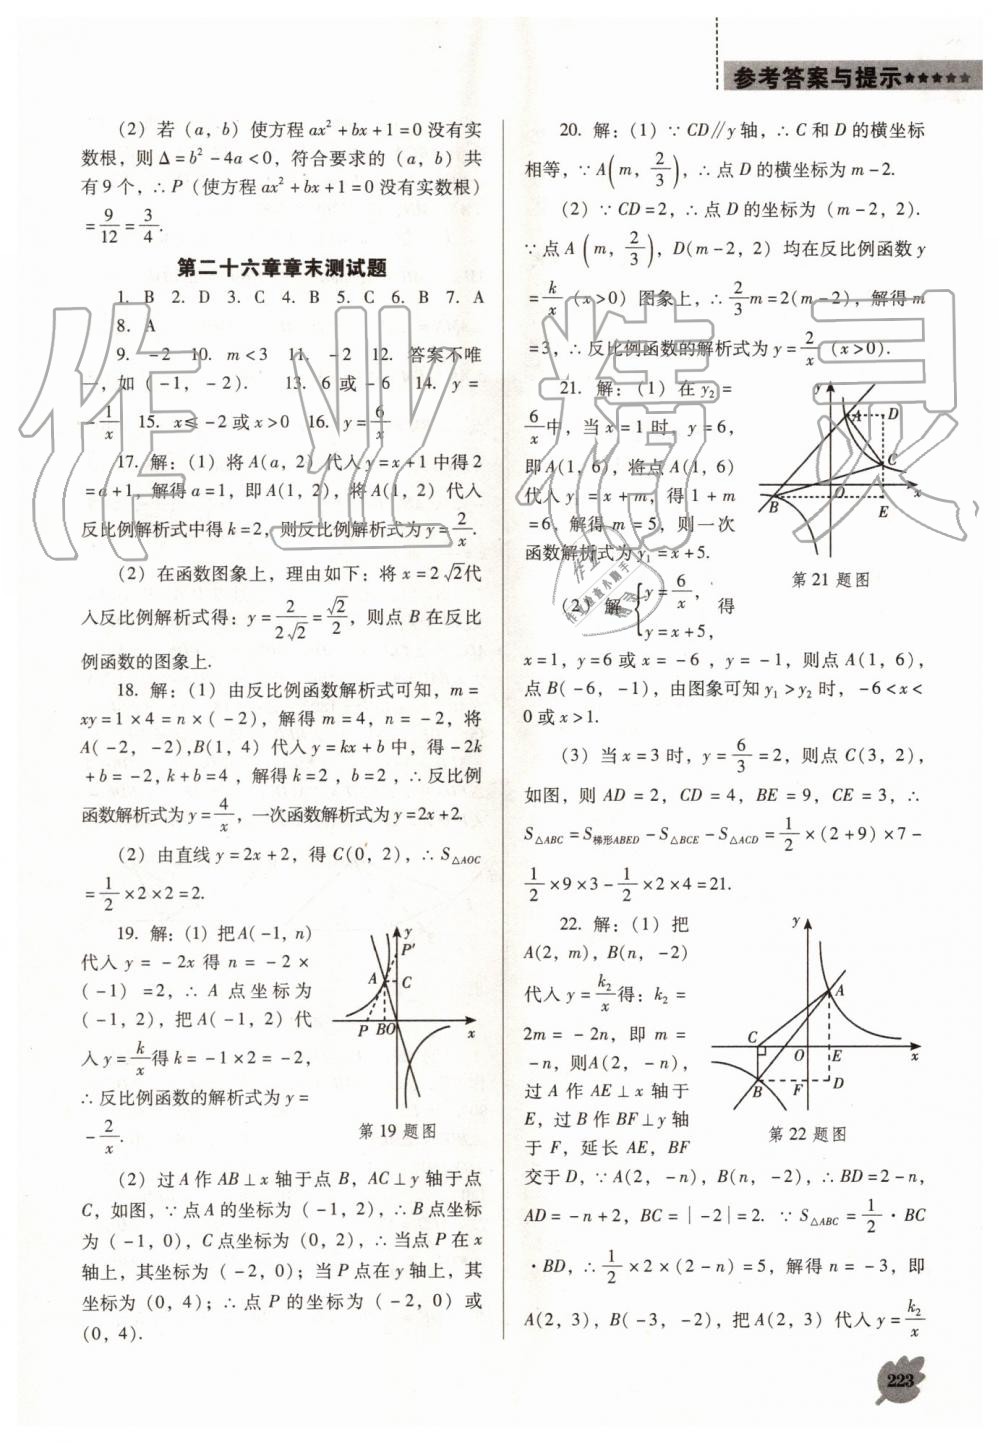 参考答案与提示★★★★★
(2) 若 (a, b) 使方程 ax²+bx+1=0 没有实
数根，则 Δ=b²-4a<0，符合要求的 (a, b) 共
有 9 个，∴ P (使方程 ax²+bx+1=0 没有实数根)
=9/12=3/4.
第二十六章章末测试题
1. B 2. D 3. C 4. B 5. C 6. B 7. A
8. A
9. -2 10. m<3 11. -2 12. 答案不唯
一，如 (-1, -2). 13. 6 或 -6 14. y=
-1/x 15. x≤-2 或 x>0 16. y=6/x
17. 解：(1) 将 A(a, 2) 代入 y=x+1 中得 2
=a+1，解得 a=1，即 A(1, 2)，将 A(1, 2) 代入
反比例解析式中得 k=2，则反比例解析式为 y=2/x.
(2) 在函数图象上，理由如下：将 x=2√2代
入反比例解析式得：y=2/(2√2)=√2/2，则点 B 在反比
例函数的图象上.
18. 解：(1) 由反比例函数解析式可知，m=
xy=1×4=n×(-2)，解得 m=4，n=-2，将
A(-2, -2),B(1, 4) 代入 y=kx+b 中，得 -2k
+b=-2,k+b=4，解得 k=2，b=2，∴ 反比例
函数解析式为 y=4/x，一次函数解析式为 y=2x+2.
(2) 由直线 y=2x+2，得 C(0, 2)，∴ S△AOC
=1/2×2×2=2.
19. 解：(1) 把 A(-1, n)
代入 y=-2x 得 n=-2×
(-1)=2，∴ A 点坐标为
(-1, 2)，把 A(-1, 2) 代
入 y=k/x 得 k=-1×2=-2，
∴ 反比例函数的解析式为 y=
-2/x.
y
P′
A
C
P
B
O
x
第 19 题图
(2) 过 A 作 AB⊥x 轴于点 B，AC⊥y 轴于点
C，如图，∵ 点 A 的坐标为 (-1, 2)，∴ B 点坐标
为 (-1, 0)，C 点坐标为 (0, 2)，∴ 当点 P 在 x
轴上，其坐标为 (-2, 0)；当 P 点在 y 轴上，其
坐标为 (0, 4)；∴ 点 P 的坐标为 (-2, 0) 或
(0, 4).
20. 解：(1) ∵ CD∥y 轴，∴ C 和 D 的横坐标
相等，∵ A(m, 2/3)，∴ 点 D 的横坐标为 m-2.
(2) ∵ CD=2，∴ 点 D 的坐标为 (m-2, 2).
∵ 点 A (m, 2/3)，D(m-2, 2) 均在反比例函数 y
=k/x (x>0) 图象上，∴ 2/3m=2(m-2)，解得 m
=3，∴ 反比例函数的解析式为 y=2/x (x>0).
21. 解：(1) 在 y₂=
6/x中，当 x=1 时，y=6，
即 A(1, 6)，将点 A(1, 6)
代入 y₁=x+m，得 1+m
=6，解得 m=5，则一次
函数解析式为 y₁=x+5.
y
A
D
C
B
O
E
x
第 21 题图
(2) 解 {y=6/x，得
y=x+5，
x=1，y=6 或 x=-6，y=-1，则点 A(1, 6)，
点 B(-6, -1)，由图象可知 y₁>y₂ 时，-6<x<
0 或 x>1.
(3) 当 x=3 时，y=6/3=2，则点 C(3, 2)，
如图，则 AD=2，CD=4，BE=9，CE=3，∴
S△ABC=S梯形ABED-S△BCE-S△ACD=1/2×(2+9)×7-
1/2×9×3-1/2×2×4=21.
22. 解：(1) 把
A(2, m)，B(n, -2)
代入 y=k₂/x得：k₂=
2m=-2n，即 m=
-n，则A(2, -n)，
过 A 作 AE⊥x 轴于
E，过 B 作 BF⊥y 轴
于 F，延长 AE，BF
y
A
C
O
E
x
B
F
D
第 22 题图
交于 D，∵ A(2, -n)，B(n, -2)，∴ BD=2-n，
AD=-n+2，BC=|-2|=2. ∵ S△ABC=1/2·BC
·BD，∴ 1/2×2×(2-n)=5，解得 n=-3，即
A(2, 3)，B(-3, -2)，把 A(2, 3) 代入 y=k₂/x
223
作业精灵